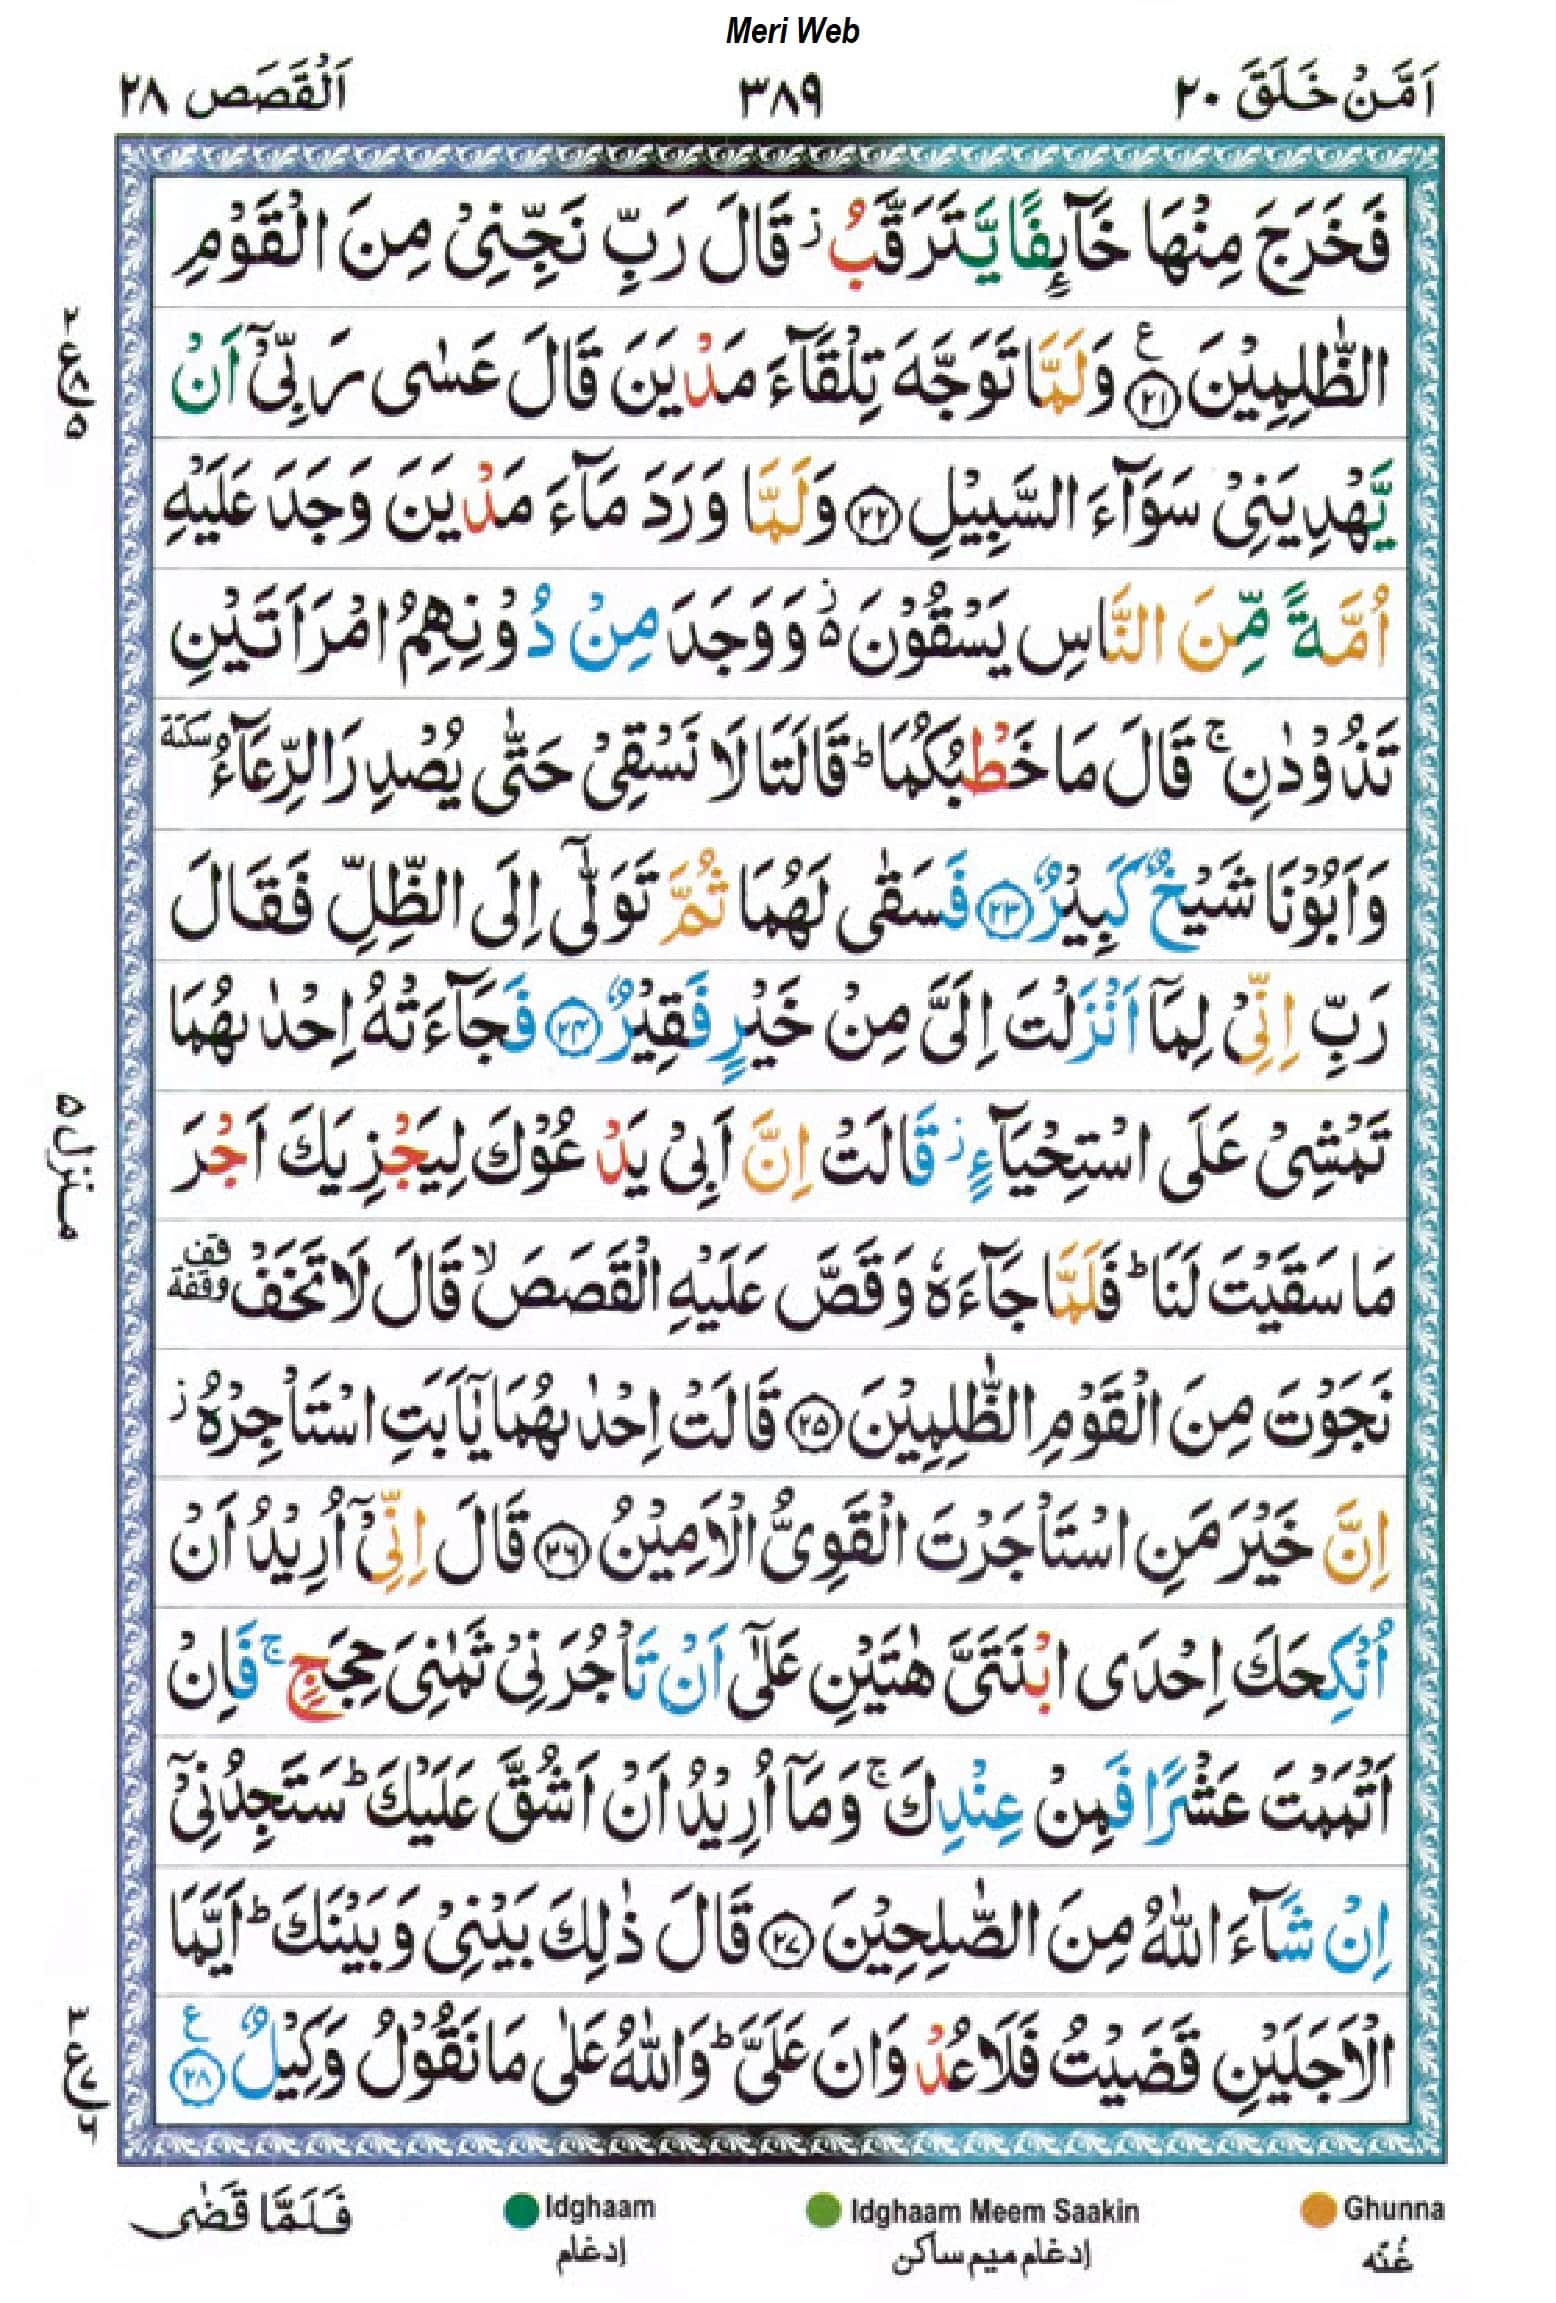 Meri Web
اَمَّنْ خَلَقَ ۲۰
۳۸۹
اَلْقَصَص ۲۸
فَخَرَجَ مِنْهَا خَآىِٕفًا يَّتَرَقَّبُ ز قَالَ رَبِّ نَجِّنِىْ مِنَ الْقَوْمِ
الظّٰلِمِيْنَ ۲۱ ع وَلَمَّا تَوَجَّهَ تِلْقَآءَ مَدْيَنَ قَالَ عَسٰى رَبِّىْٓ اَنْ
يَّهْدِيَنِىْ سَوَآءَ السَّبِيْلِ ۲۲ وَلَمَّا وَرَدَ مَآءَ مَدْيَنَ وَجَدَ عَلَيْهِ
اُمَّةً مِّنَ النَّاسِ يَسْقُوْنَ ۥز وَوَجَدَ مِنْ دُوْنِهِمُ امْرَاَتَيْنِ
تَذُوْدٰنِ ۚ قَالَ مَا خَطْبُكُمَا ؕ قَالَتَا لَا نَسْقِىْ حَتّٰى يُصْدِرَ الرِّعَآءُ سكتة
وَاَبُوْنَا شَيْخٌ كَبِيْرٌ ۲۳ فَسَقٰى لَهُمَا ثُمَّ تَوَلّٰٓى اِلَى الظِّلِّ فَقَالَ
رَبِّ اِنِّىْ لِمَآ اَنْزَلْتَ اِلَىَّ مِنْ خَيْرٍ فَقِيْرٌ ۲۴ فَجَآءَتْهُ اِحْدٰىهُمَا
تَمْشِىْ عَلَى اسْتِحْيَآءٍ ز قَالَتْ اِنَّ اَبِىْ يَدْعُوْكَ لِيَجْزِيَكَ اَجْرَ
مَا سَقَيْتَ لَنَا ؕ فَلَمَّا جَآءَهٗ وَقَصَّ عَلَيْهِ الْقَصَصَ ۙ قَالَ لَا تَخَفْ قف وقفة
نَجَوْتَ مِنَ الْقَوْمِ الظّٰلِمِيْنَ ۲۵ قَالَتْ اِحْدٰىهُمَا يٰٓاَبَتِ اسْتَاْجِرْهُ ز
اِنَّ خَيْرَ مَنِ اسْتَاْجَرْتَ الْقَوِىُّ الْاَمِيْنُ ۲۶ قَالَ اِنِّىْٓ اُرِيْدُ اَنْ
اُنْكِحَكَ اِحْدَى ابْنَتَىَّ هٰتَيْنِ عَلٰٓى اَنْ تَاْجُرَنِىْ ثَمٰنِىَ حِجَجٍ ۚ فَاِنْ
اَتْمَمْتَ عَشْرًا فَمِنْ عِنْدِكَ ۚ وَمَآ اُرِيْدُ اَنْ اَشُقَّ عَلَيْكَ ؕ سَتَجِدُنِىْٓ
اِنْ شَآءَ اللّٰهُ مِنَ الصّٰلِحِيْنَ ۲۷ قَالَ ذٰلِكَ بَيْنِىْ وَبَيْنَكَ ؕ اَيَّمَا
الْاَجَلَيْنِ قَضَيْتُ فَلَا عُدْوَانَ عَلَىَّ ؕ وَاللّٰهُ عَلٰى مَا نَقُوْلُ وَكِيْلٌ ۲۸ ع
۲ ع ۵
منزل ۵
فَلَمَّا قَضٰى
Idghaam
ادغام
Idghaam Meem Saakin
ادغام ميم ساكن
Ghunna
غُنّه